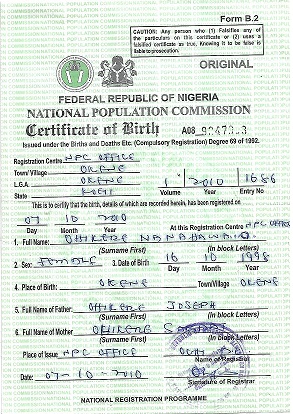 Form B.2
CAUTION: Any person who (1) Falsifies any
of the particulars on this certificate or (2) uses a
falsified certificate as true, Knowing it to be false
is liable to prosecution.
ORIGINAL
FEDERAL REPUBLIC OF NIGERIA
NATIONAL POPULATION COMMISSION
Certificate of Birth A08
Issued under the Births and Deaths Etc. (Compulsory Registration) Degree 69 of 1992.
Registration Centre NPC OFFICE
Town/Village OKENE
L.G.A. OKENE 1 2010 1686
State KOGI Volume Year Entry No
This is to certify that the birth, details of which are recorded herein, has been registered on
07 10 2010
Day Month Year At this Registration Centre NPC OFFICE
1. Full Name: OHIKERE
(Surname First) (In block Letters)
2 Sex: FEMALE 3. Date of Birth 16 10 1998
Day Month Year
4. Place of Birth: OKENE Town/Village OKENE
5. Full Name of Father: OHIKERE JOSEPH
(Surname First) (In block Letters)
6. Full Name of Mother OHIKERE
(Surname First) (In block Letters)
Place of Issue NPC OFFICE
Name of Registrar
Date: 07-10-2010
Signature of Registrar
NATIONAL REGISTRATION PROGRAMME